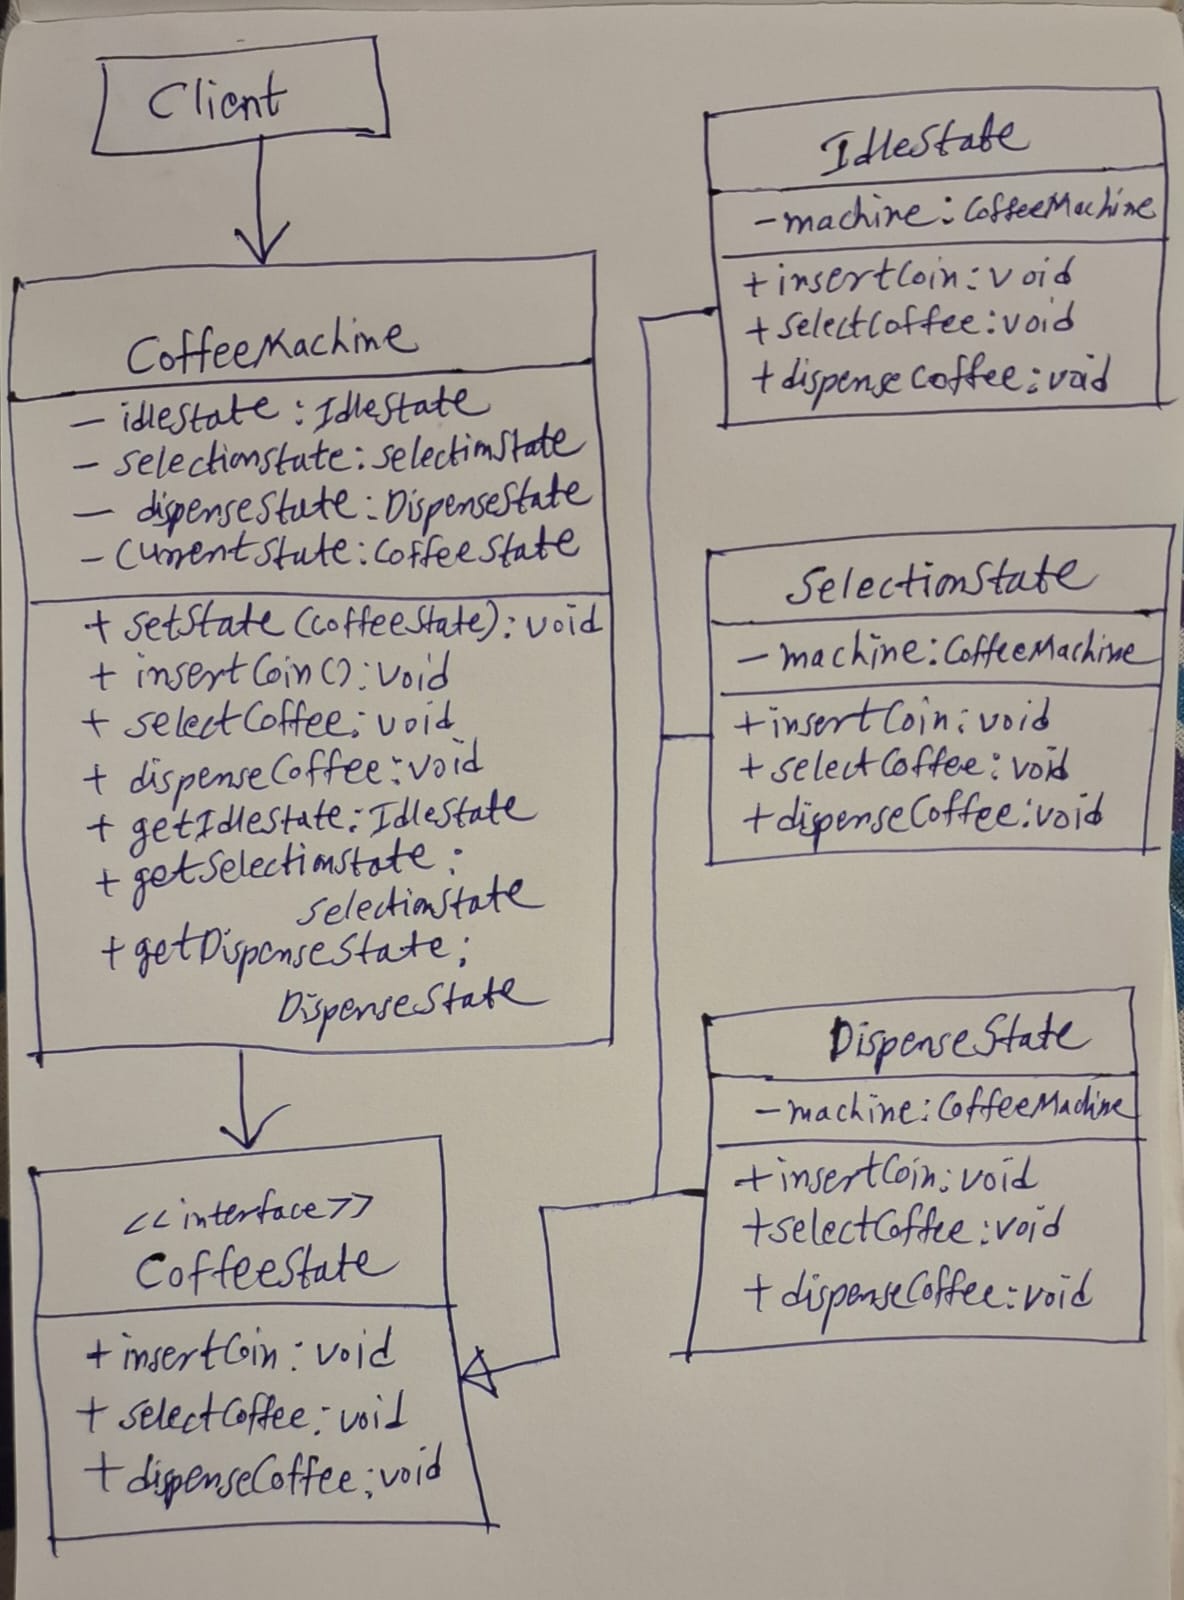 Client
CoffeeMachine
- idleState: IdleState
- selectionState: selectionState
- dispenseState: DispenseState
- CurrentState: CoffeeState
+ setState (coffeeState): void
+ insertCoin(): void
+ selectCoffee: void
+ dispenseCoffee: void
+ getIdleState: IdleState
+ getSelectionState:
selectionState
+ getDispenseState:
DispenseState
<<interface>>
CoffeeState
+ insertCoin: void
+ selectCoffee: void
+ dispenseCoffee: void
IdleState
- machine: CoffeeMachine
+ insertCoin: void
+ selectCoffee: void
+ dispenseCoffee: void
SelectionState
- machine: CoffeeMachine
+ insertCoin: void
+ selectCoffee: void
+ dispenseCoffee: void
DispenseState
- machine: CoffeeMachine
+ insertCoin: void
+ selectCoffee: void
+ dispenseCoffee: void